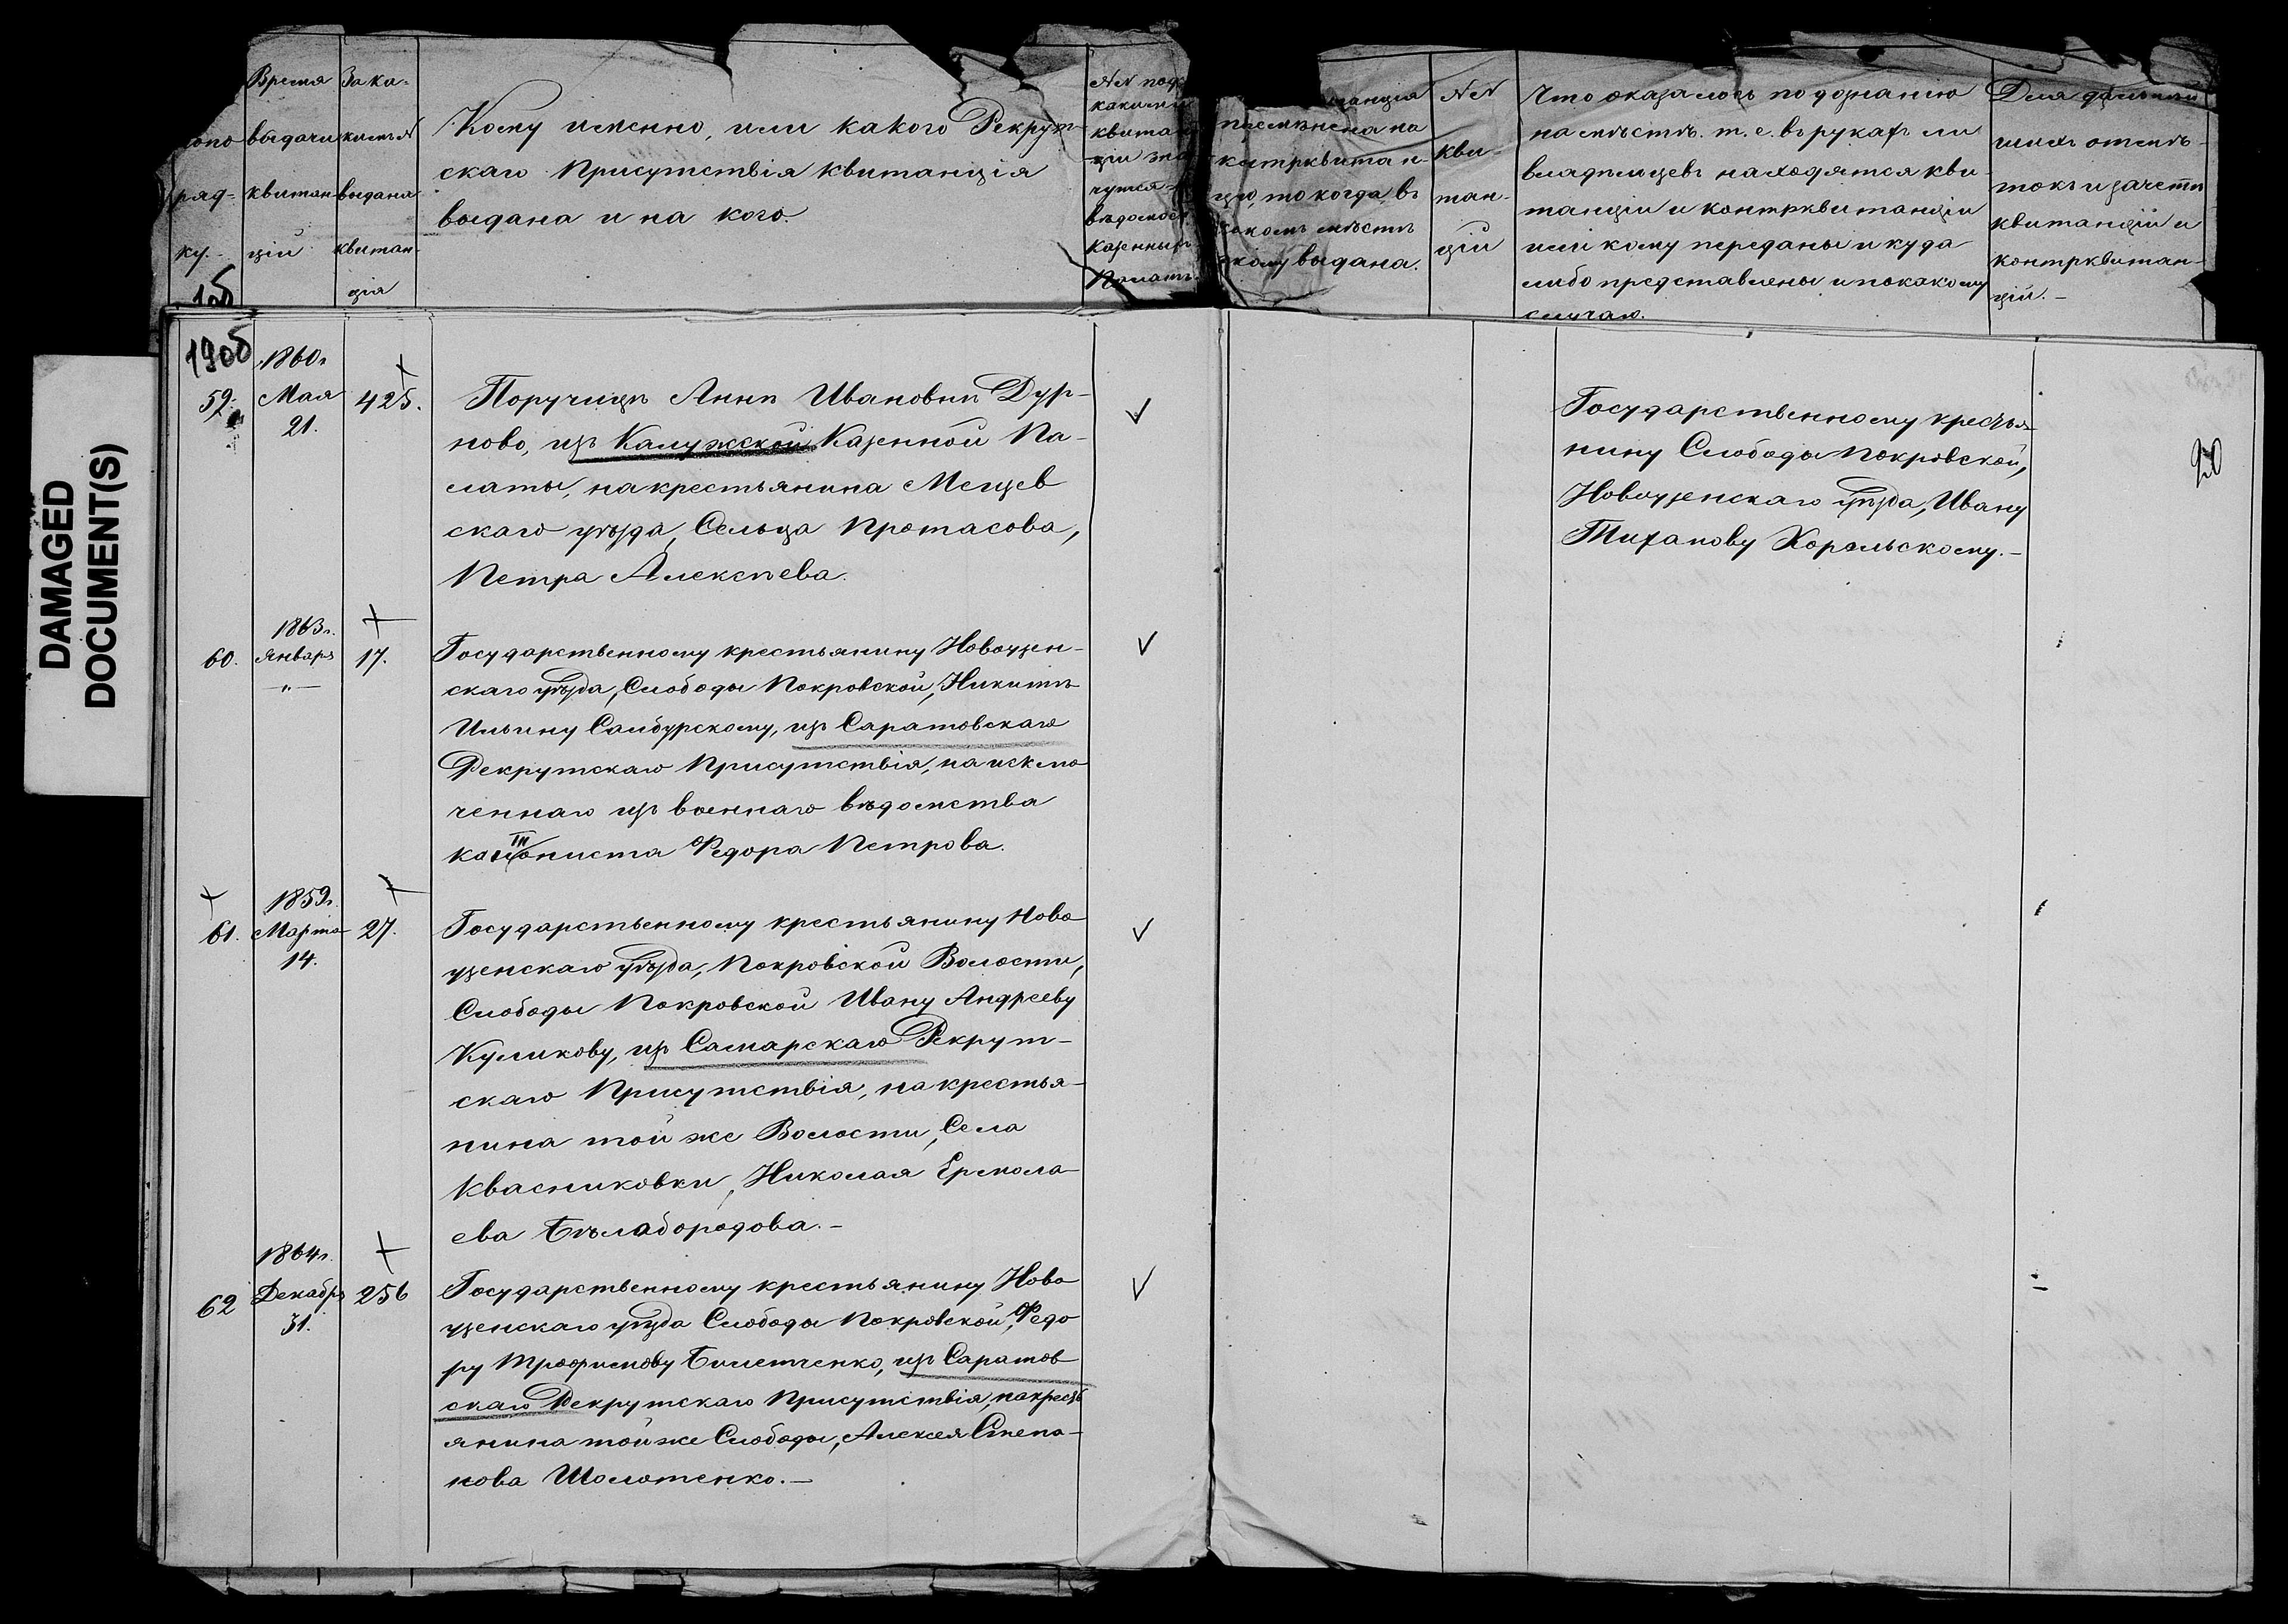 Время
За ка-
выдачи
кимъ №
ряд-
квитан
выдана
ку.-
цій
квитан-
ція
Кому именно, или какого Рекрут-
скаго Присутствія квитанція
выдана и на кого.
№№ под
какими
квитан
ціи
вѣдомост
казенныхъ
Палатъ
анція
то когда, въ
какомъ мѣстѣ
и кому выдана.
№№
кви-
тан-
цій
Что оказалось по дознанію
на мѣстѣ. т. е. въ рукахъ ли
владѣльцевъ находятся кви-
танціи и контрквитанціи
или кому переданы и куда
либо представлены и по какому
случаю.
Для дальнѣй
шихъ отмѣ-
токъ и зачетъ
квитанцій и
контрквитан-
цій.-
19об
59.
1860г
Мая
21.
425.
Поручицѣ Аннѣ Ивановнѣ Дур-
ново, изъ Калужской Казенной Па-
латы, на крестьянина Мещев
скаго уѣзда, Сельца Протасова,
Петра Алексѣева.
Государственному крестья-
нину Слободы Покровской,
Новоузенскаго уѣзда, Ивану
Тиханову Хорольскому.-
20
60.
1863г.
Январь
-"-
17.
Государственному крестьянину Новоузен-
скаго уѣзда, Слободы Покровской, Никитѣ
Ильину Самбурскому, изъ Саратовскаго
Рекрутскаго Присутствія, на исклю
ченнаго изъ военнаго вѣдомства
кантониста Федора Петрова.
61.
1859г.
Марта
14.
27.
Государственному крестьянину Ново
узенскаго уѣзда, Покровской Волости,
Слободы Покровской Ивану Андрееву
Куликову, изъ Самарскаго Рекрут-
скаго Присутствія, на крестья-
нина той же Волости, Села
Квасниковки, Николая Ермола-
ева Бѣлабородова.-
62
1864г.
Декабрь
31.
256
Государственному крестьянину Ново
узенскаго уѣзда Слободы Покровской, Федо
ру Трофимову Билетченко, изъ Саратов
скаго Рекрутскаго Присутствія, на кресть
янина той же Слободы, Алексея Степа-
нова Шолотенко.-
DAMAGED
DOCUMENT(S)